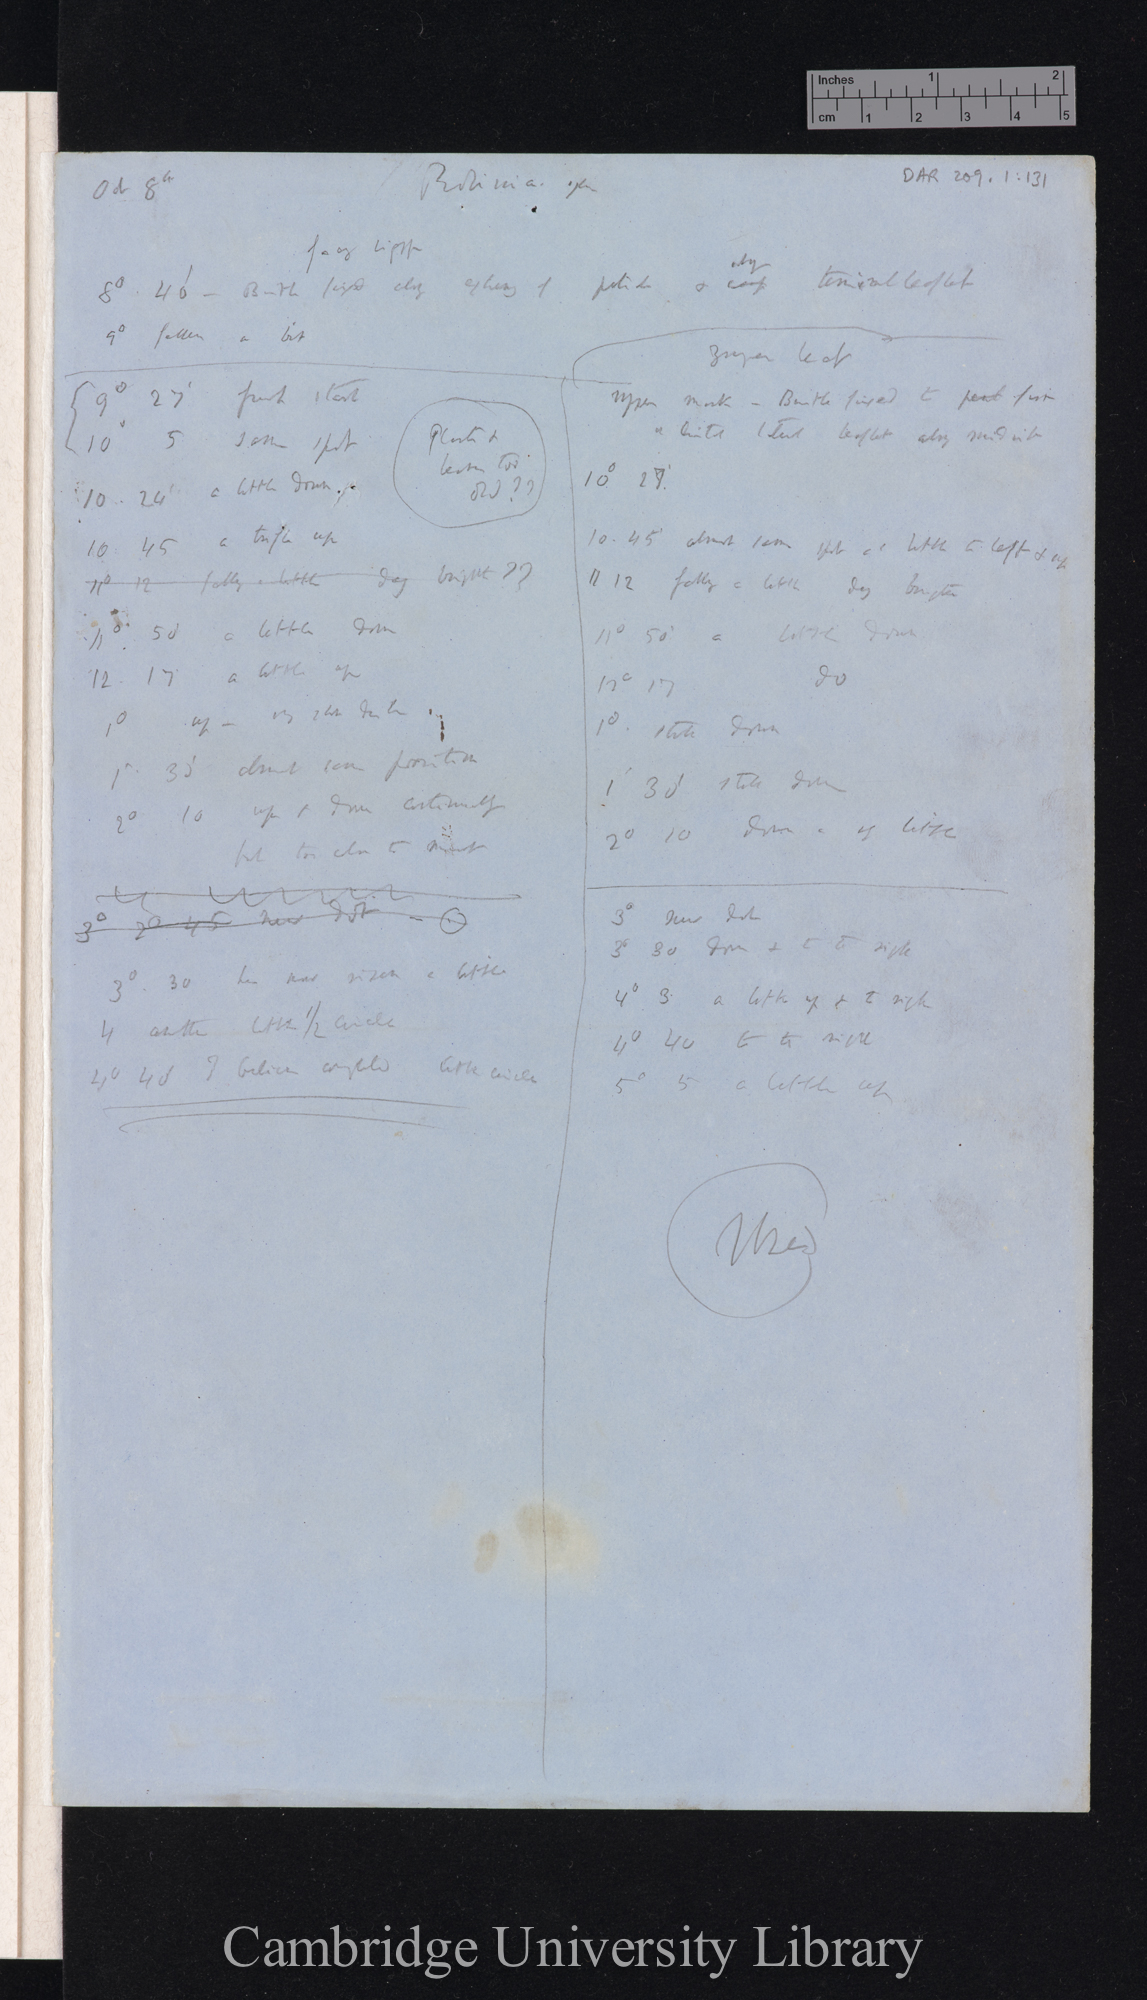 Inches 1 2
cm 1 2 3 4 5
Oct 8th Robinia. open
DAR 209.1:131
8° 40' — Bristle fixed along of petiole & along terminal leaflet
9° fallen a bit
9° 27' fresh start
10° 5 same spot
10. 24' a little down.
10 45 a trifle up
11° 12 falling a little day bright ??
11° 50' a little down
12. 17 a little up
1° up —
1° 30' almost same position
2° 10 up & down continually
but too close to
3° 2° 45 new dot —
3°. 30 has now risen a little
4 another little 1/2 circle
4° 40' I believe completed little circle
Plant &
leaves too
old ??
Younger leaf
Upper mark — Bristle fixed to first
lateral leaflet along midrib
10° 27'
10. 45 almost same spot a little to left & up
11 12 falling a little day brighter
11° 50' a little down
12° 17 do
1°. still down
1° 30' still down
2° 10 down a little
3° new dot
3° 30 down & to right
4° 3 a little up & to right
4° 40 to right
5° 5 a little up
Used
Cambridge University Library